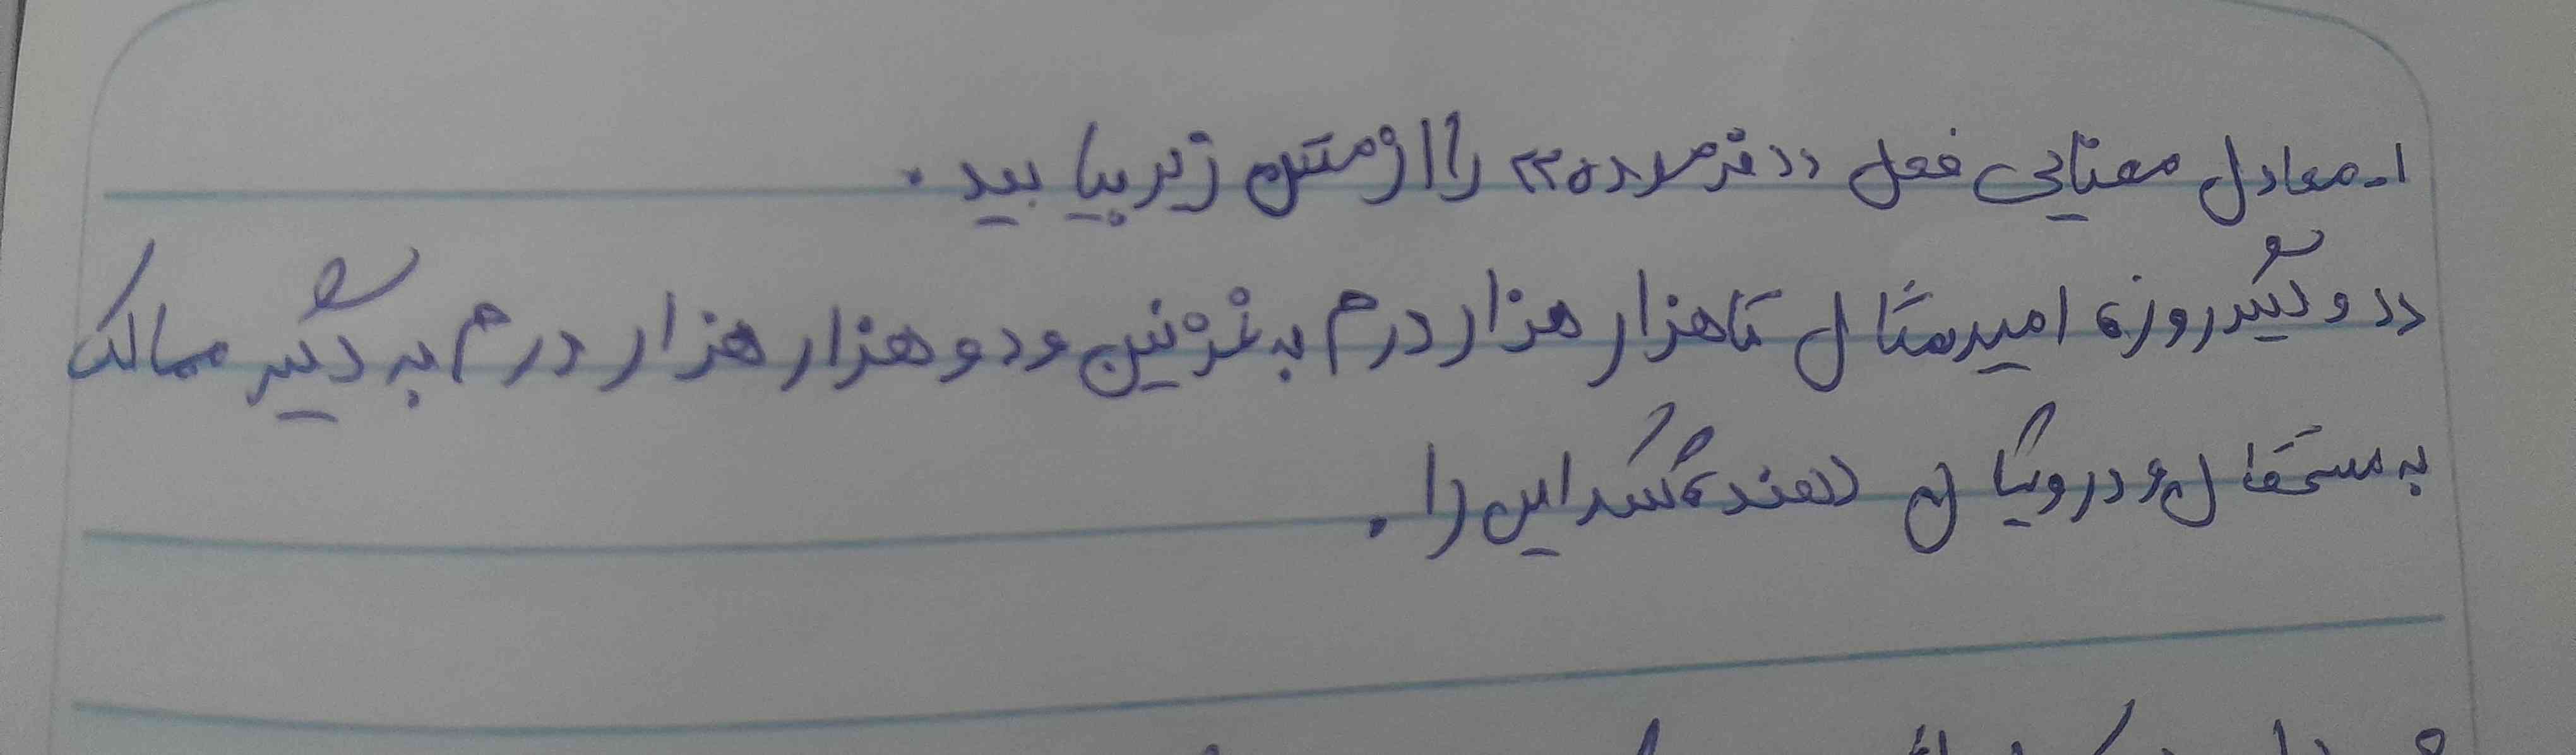 ۱ـ معادل معنایی فعل «فرموده» را از متن زیر بیابید.
«و دیگر روز، امیر مثال تا هزار هزار درم به غزنین و دو هزار هزار درم به دیگر ممالک
به مستحقان و درویشان دهند، شکر این را.